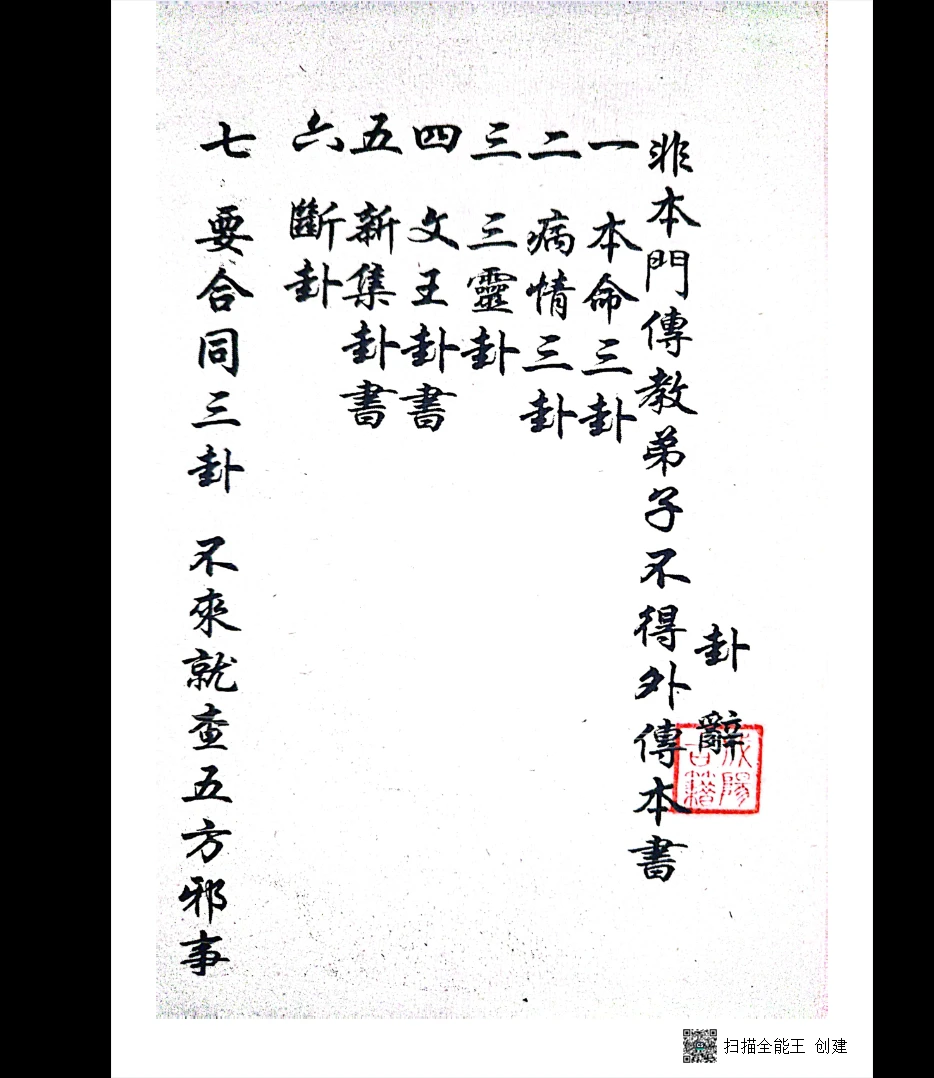 卦辭
非本門傳教弟子不得外傳本書
一 本命三卦
二 病情三卦
三 三靈卦
四 文王卦書
五 新集卦書
六 斷卦
七 要合同三卦 不來就查五方邪事
咸陽古籍
扫描全能王 创建